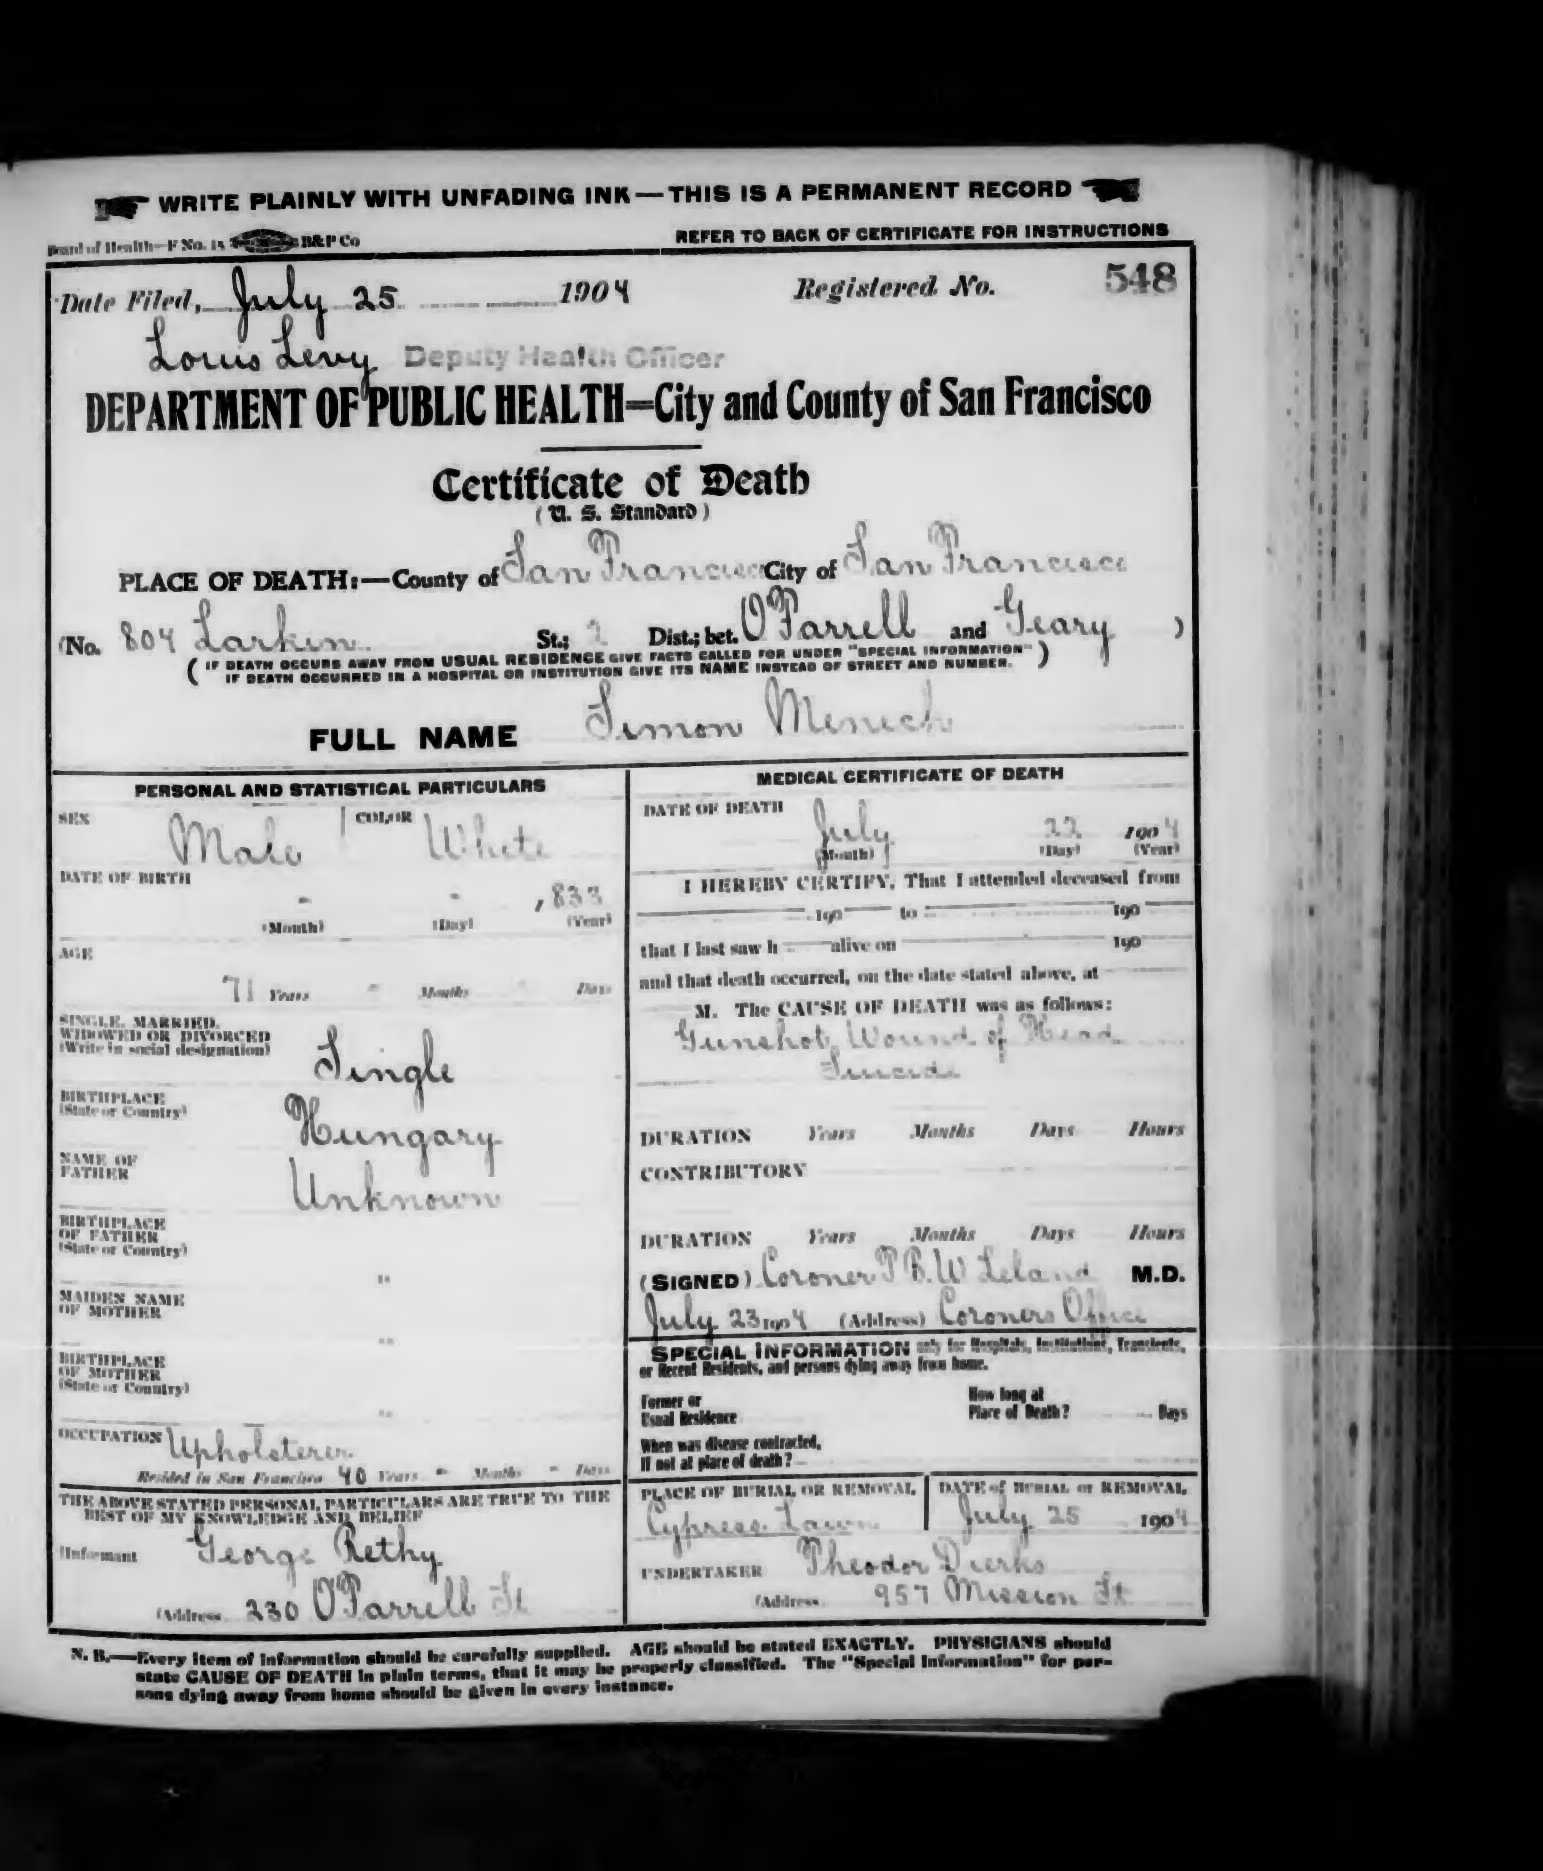 WRITE PLAINLY WITH UNFADING INK — THIS IS A PERMANENT RECORD
Board of Health—F No. 15 B&P Co
REFER TO BACK OF CERTIFICATE FOR INSTRUCTIONS
Date Filed, July 25 1904 Registered No. 548
Louis Levy Deputy Health Officer
DEPARTMENT OF PUBLIC HEALTH=City and County of San Francisco
Certificate of Death
(U. S. Standard)
PLACE OF DEATH:—County of San Francisco City of San Francisco
(No. 804 Larkin St.; 2 Dist.; bet. O'Farrell and Geary )
( IF DEATH OCCURS AWAY FROM USUAL RESIDENCE GIVE FACTS CALLED FOR UNDER "SPECIAL INFORMATION" )
IF DEATH OCCURRED IN A HOSPITAL OR INSTITUTION GIVE ITS NAME INSTEAD OF STREET AND NUMBER.
FULL NAME Simon Menich
PERSONAL AND STATISTICAL PARTICULARS
SEX Male COLOR White
DATE OF BIRTH
- - 1833
(Month) (Day) (Year)
AGE
71 Years - Months - Days
SINGLE, MARRIED,
WIDOWED OR DIVORCED
(Write in social designation) Single
BIRTHPLACE
(State or Country) Hungary
NAME OF
FATHER Unknown
BIRTHPLACE
OF FATHER
(State or Country) "
MAIDEN NAME
OF MOTHER "
BIRTHPLACE
OF MOTHER
(State or Country) "
OCCUPATION Upholsterer
Resided in San Francisco 40 Years - Months - Days
THE ABOVE STATED PERSONAL PARTICULARS ARE TRUE TO THE
BEST OF MY KNOWLEDGE AND BELIEF
(Informant George Rethy
(Address 230 O'Farrell St
MEDICAL CERTIFICATE OF DEATH
DATE OF DEATH July 22 1904
(Month) (Day) (Year)
I HEREBY CERTIFY, That I attended deceased from
190 to 190
that I last saw h alive on 190
and that death occurred, on the date stated above, at
M. The CAUSE OF DEATH was as follows:
Gunshot Wound of Head
Suicide
DURATION Years Months Days Hours
CONTRIBUTORY
DURATION Years Months Days Hours
(SIGNED) Coroner T B. W Leland M.D.
July 23 1904 (Address) Coroners Office
SPECIAL INFORMATION only for Hospitals, Institutions, Transients,
or Recent Residents, and persons dying away from home.
Former or
Usual Residence
How long at
Place of Death? Days
When was disease contracted,
If not at place of death?
PLACE OF BURIAL OR REMOVAL
Cypress Lawn
DATE of BURIAL or REMOVAL
July 25 1904
UNDERTAKER Theodor Dierks
(Address 957 Mission St
N. B.—Every item of information should be carefully supplied. AGE should be stated EXACTLY. PHYSICIANS should
state CAUSE OF DEATH in plain terms, that it may be properly classified. The "Special Information" for per-
sons dying away from home should be given in every instance.